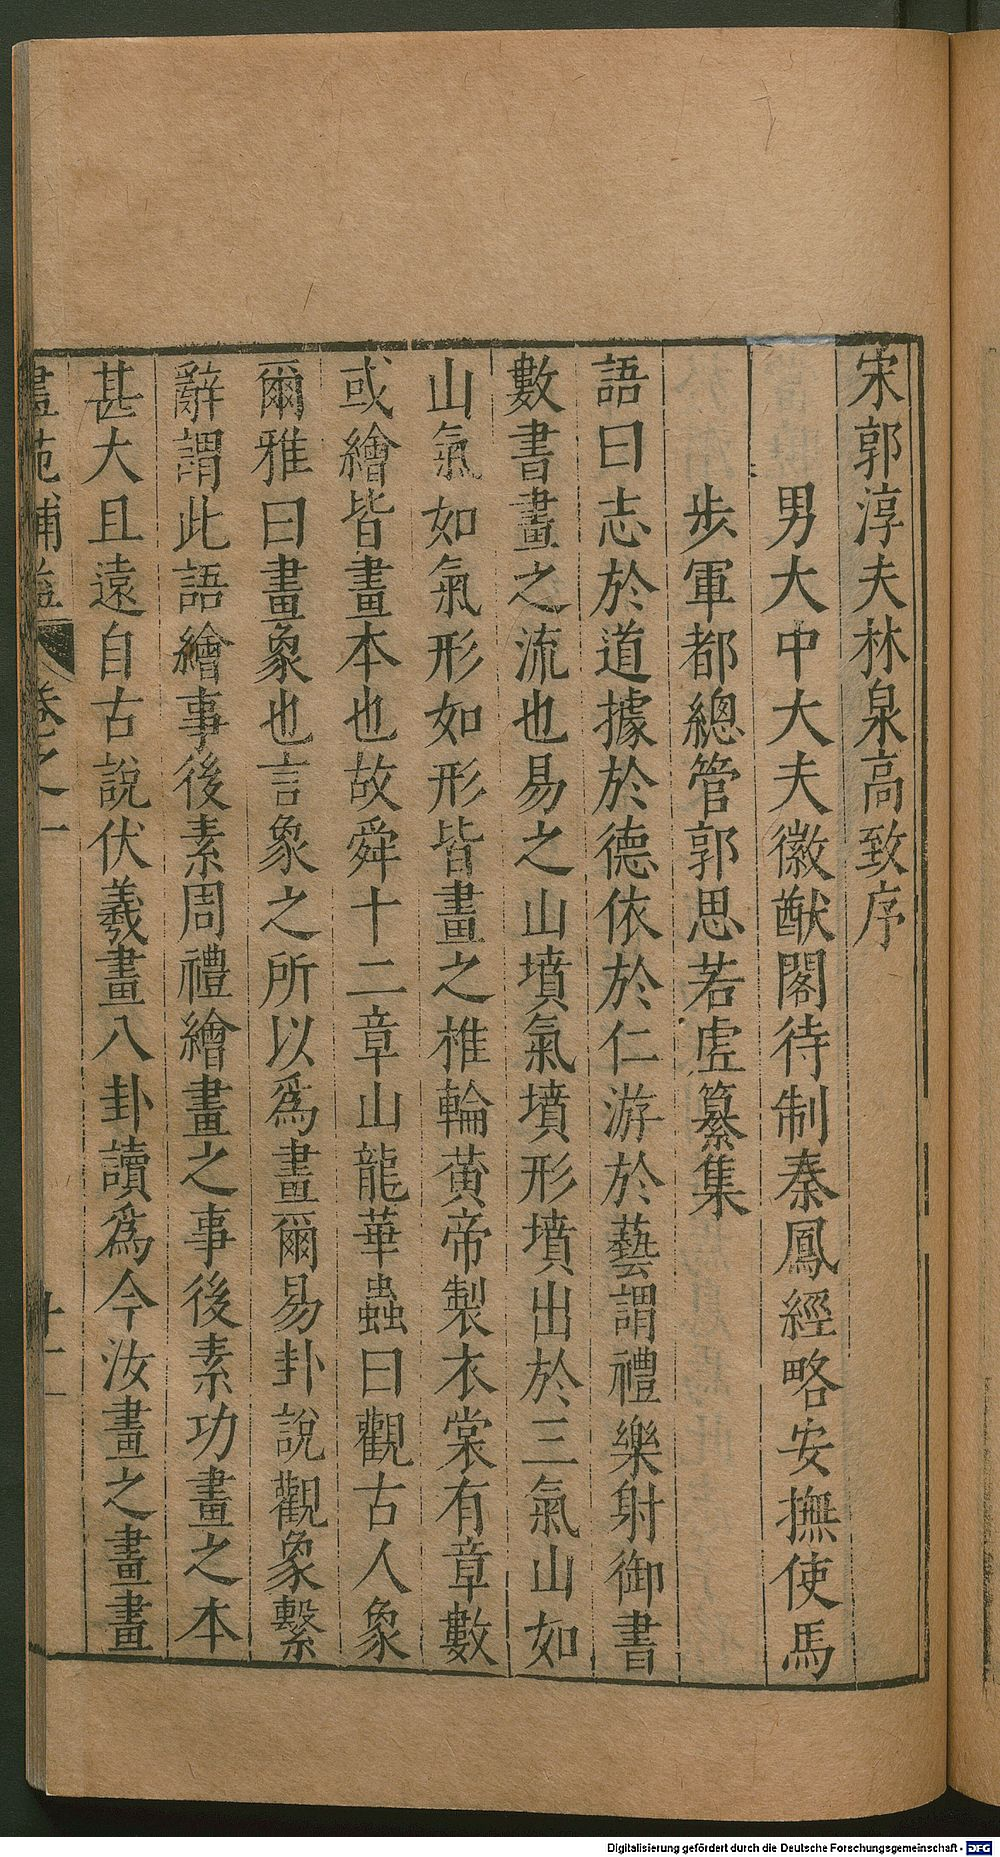 宋郭淳夫林泉高致序
男大中大夫徽猷閣待制秦鳳經略安撫使馬
步軍都總管郭思若虛纂集
語曰志於道據於德依於仁游於藝謂禮樂射御書
數書畫之流也易之山墳氣墳形墳出於三氣山如
山氣如氣形如形皆畫之椎輪黄帝製衣裳有章數
或繪皆畫本也故舜十二章山龍華蟲曰觀古人象
爾雅曰畫象也言象之所以爲畫爾易卦說觀象繫
辭謂此語繪事後素周禮繪畫之事後素功畫之本
甚大且遠自古說伏羲畫八卦讀爲今汝畫之畫畫
畫苑補益 卷之一 十一
Digitalisierung gefördert durch die Deutsche Forschungsgemeinschaft - DFG